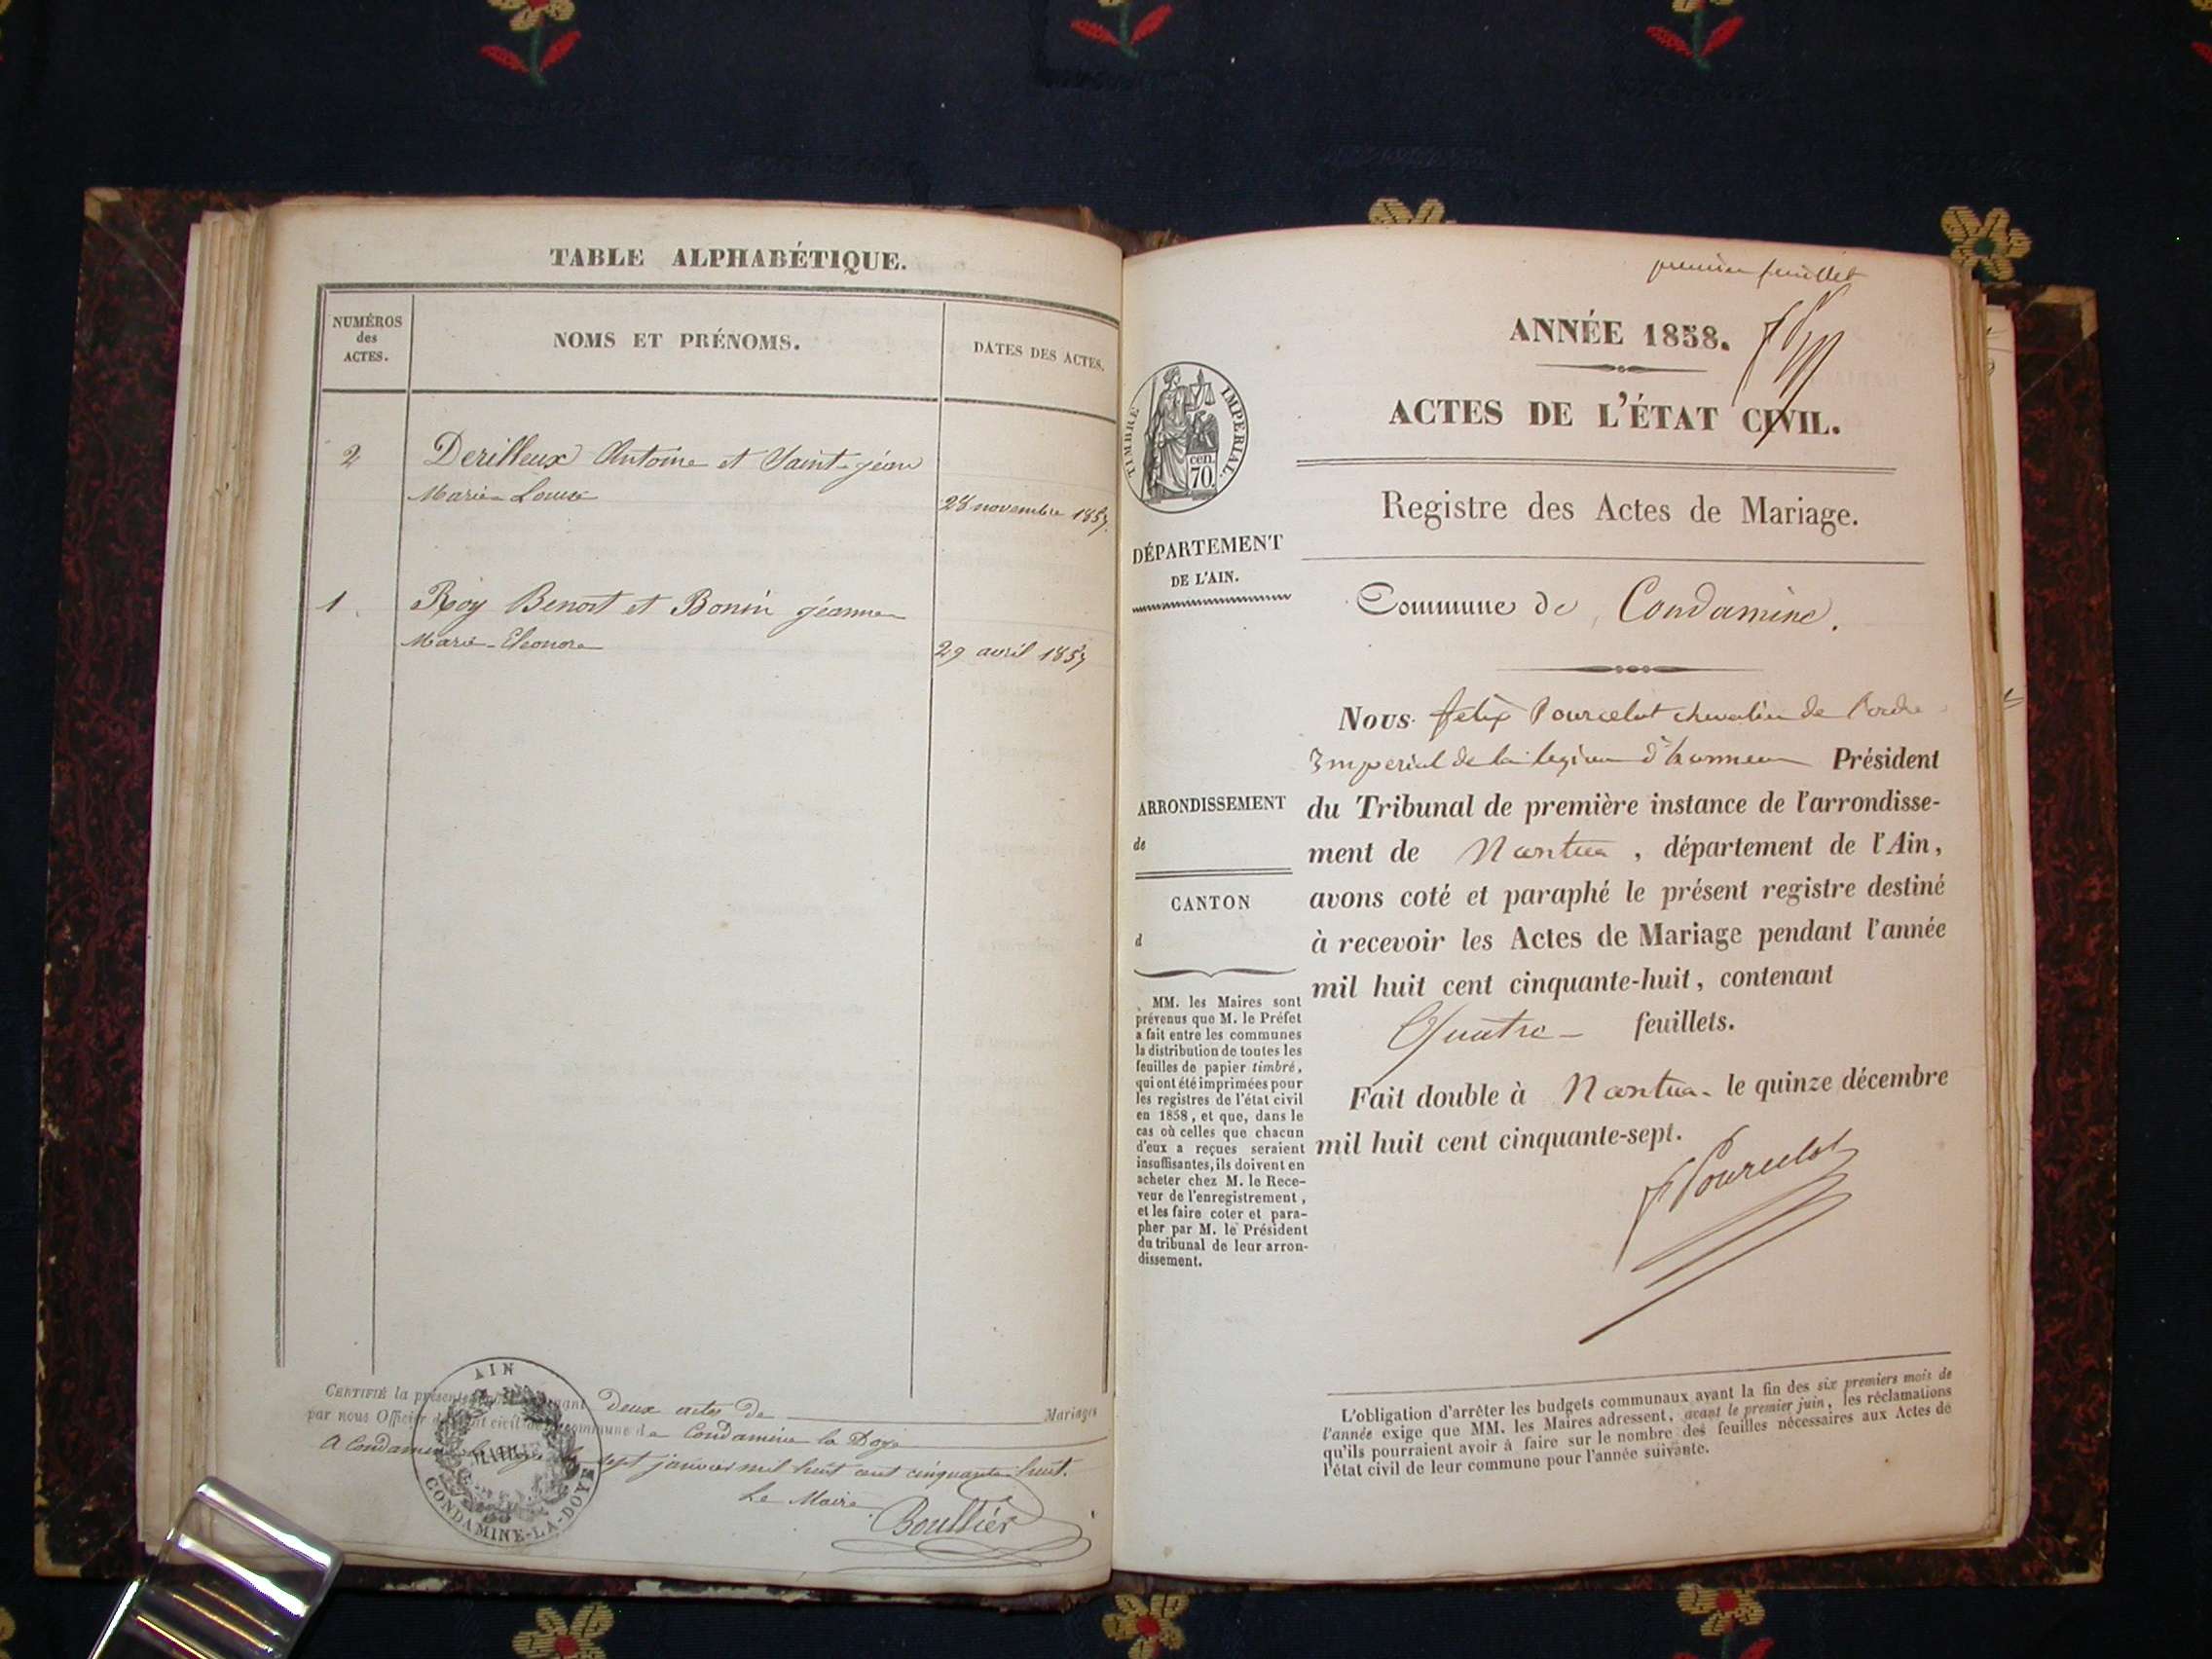 TABLE ALPHABÉTIQUE.
NUMÉROS
des
ACTES.
NOMS ET PRÉNOMS.
DATES DES ACTES.
2 Derilleux Antoine et Saint-jéan
Marie-Louise
28 novembre 1857.
1 Roy Benoit et Bonin jéanne
Marie-Eleonore
29 avril 1857
CERTIFIÉ la présente deux actes de Mariages
par nous Officier de l'état civil de la commune de Condamine la Doye
A Condamine la Doye le sept janvier mil huit cent cinquante-huit.
Le Maire
Boullier
AIN
MAIRIE
CONDAMINE-LA-DOYE
premier feuillet
ANNÉE 1858.
ACTES DE L'ÉTAT CIVIL.
TIMBRE IMPÉRIAL.
cen.
70.
Registre des Actes de Mariage.
DÉPARTEMENT
DE L'AIN.
Commune de Condamine.
Nous felix Pourcelot chevalier de l'ordre
Imperial de la legion d'honneur Président
du Tribunal de première instance de l'arrondisse-
ment de Nantua, département de l'Ain,
avons coté et paraphé le présent registre destiné
à recevoir les Actes de Mariage pendant l'année
mil huit cent cinquante-huit, contenant
Quatre feuillets.
Fait double à Nantua le quinze décembre
mil huit cent cinquante-sept.
f Pourcelot
ARRONDISSEMENT
de
CANTON
d
MM. les Maires sont
prévenus que M. le Préfet
a fait entre les communes
la distribution de toutes les
feuilles de papier timbré,
qui ont été imprimées pour
les registres de l'état civil
en 1858, et que, dans le
cas où celles que chacun
d'eux a reçues seraient
insuffisantes, ils doivent en
acheter chez M. le Rece-
veur de l'enregistrement,
et les faire coter et para-
pher par M. le Président
du tribunal de leur arron-
dissement.
L'obligation d'arrêter les budgets communaux avant la fin des six premiers mois de
l'année exige que MM. les Maires adressent, avant le premier juin, les réclamations
qu'ils pourraient avoir à faire sur le nombre des feuilles nécessaires aux Actes de
l'état civil de leur commune pour l'année suivante.